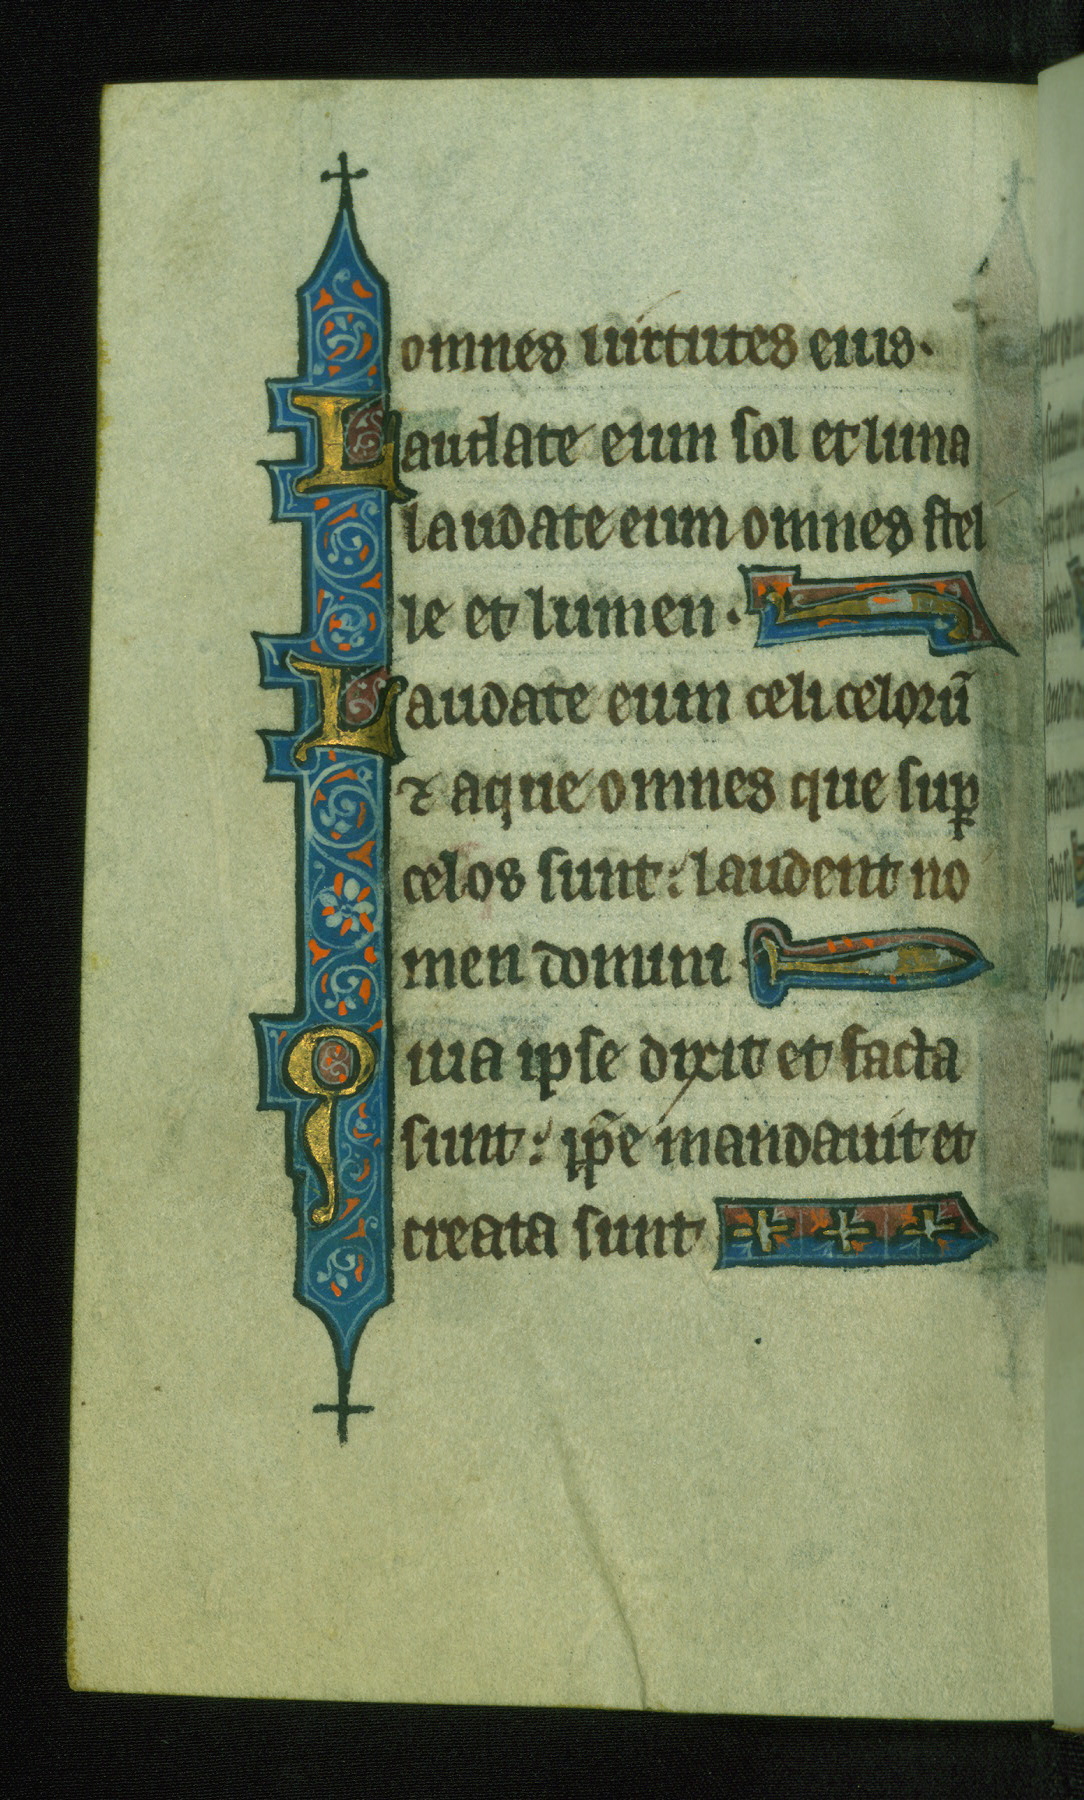 omnes uirtutes eius.
Laudate eum sol et luna
laudate eum omnes stel
le et lumen.
Laudate eum celi celorū
⁊ aque omnes que suꝑ
celos sunt: laudent no
men domini
Quia ipse dixit et facta
sunt: ip̄e mandauit et
creata sunt